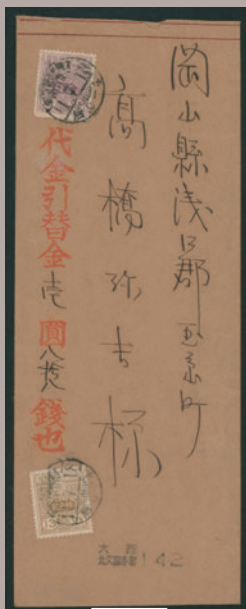 岡山縣浅口郡玉島町
高橋弥吉様
代金引替金壱圓八拾銭也
大阪
142